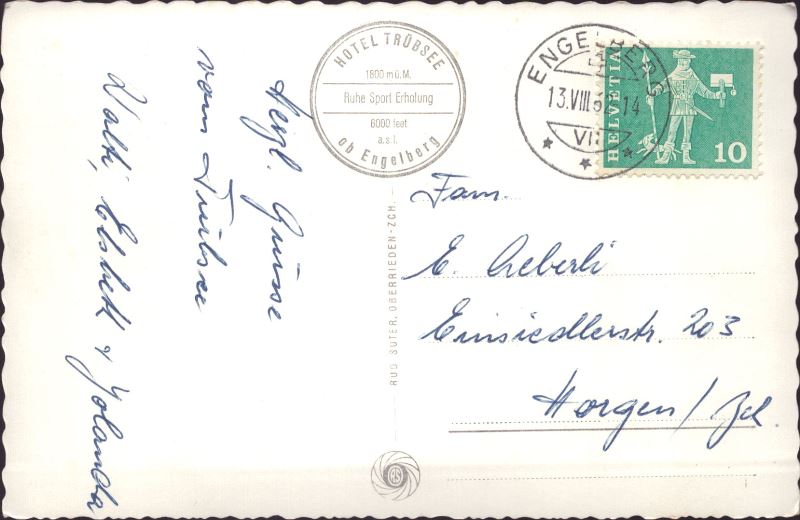 Herzl. Grüsse
vom Trübsee
Walti, Elsbeth & Jolanda
HOTEL TRÜBSEE
1800 m ü. M.
Ruhe Sport Erholung
6000 feet
a. s. l.
ob Engelberg
RUD SUTER, OBERRIEDEN-ZCH.
RS
ENGELBERG
13.VIII.6 -14
HELVETIA
10
Fam.
E. Aeberli
Einsiedlerstr. 203
Horgen / Zch.